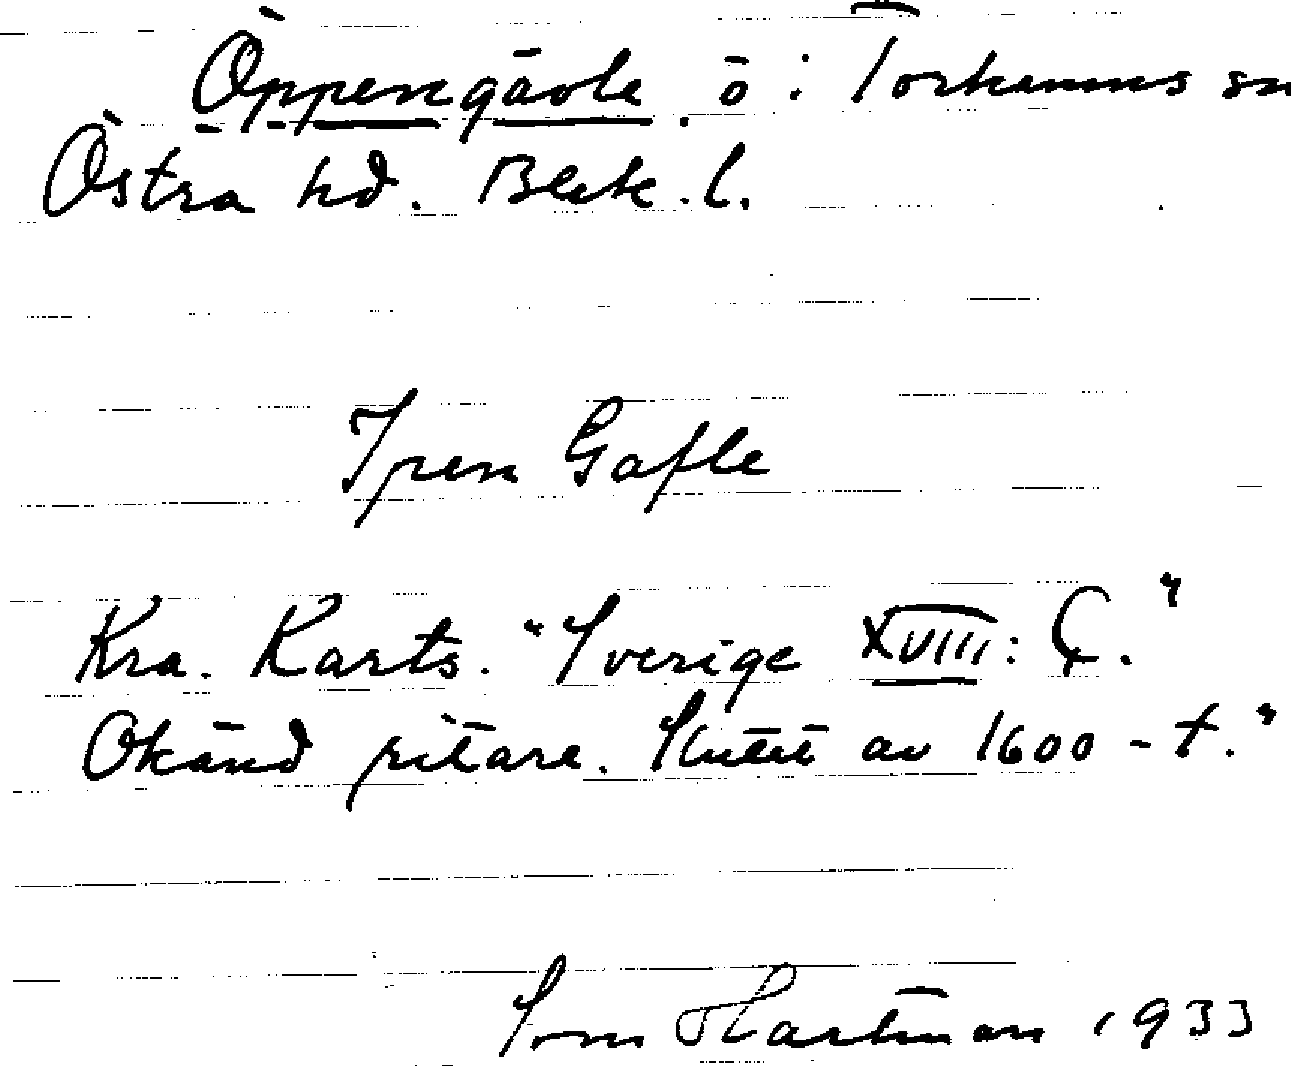 Öppengävle. ö i Torhamns sn
Östra hd. Blek. l.
Ipen Gafle
Kra. Karts. "Sverige XVIII: C."
Okänd ritare. Slutet av 1600-t."
Hartman 1933